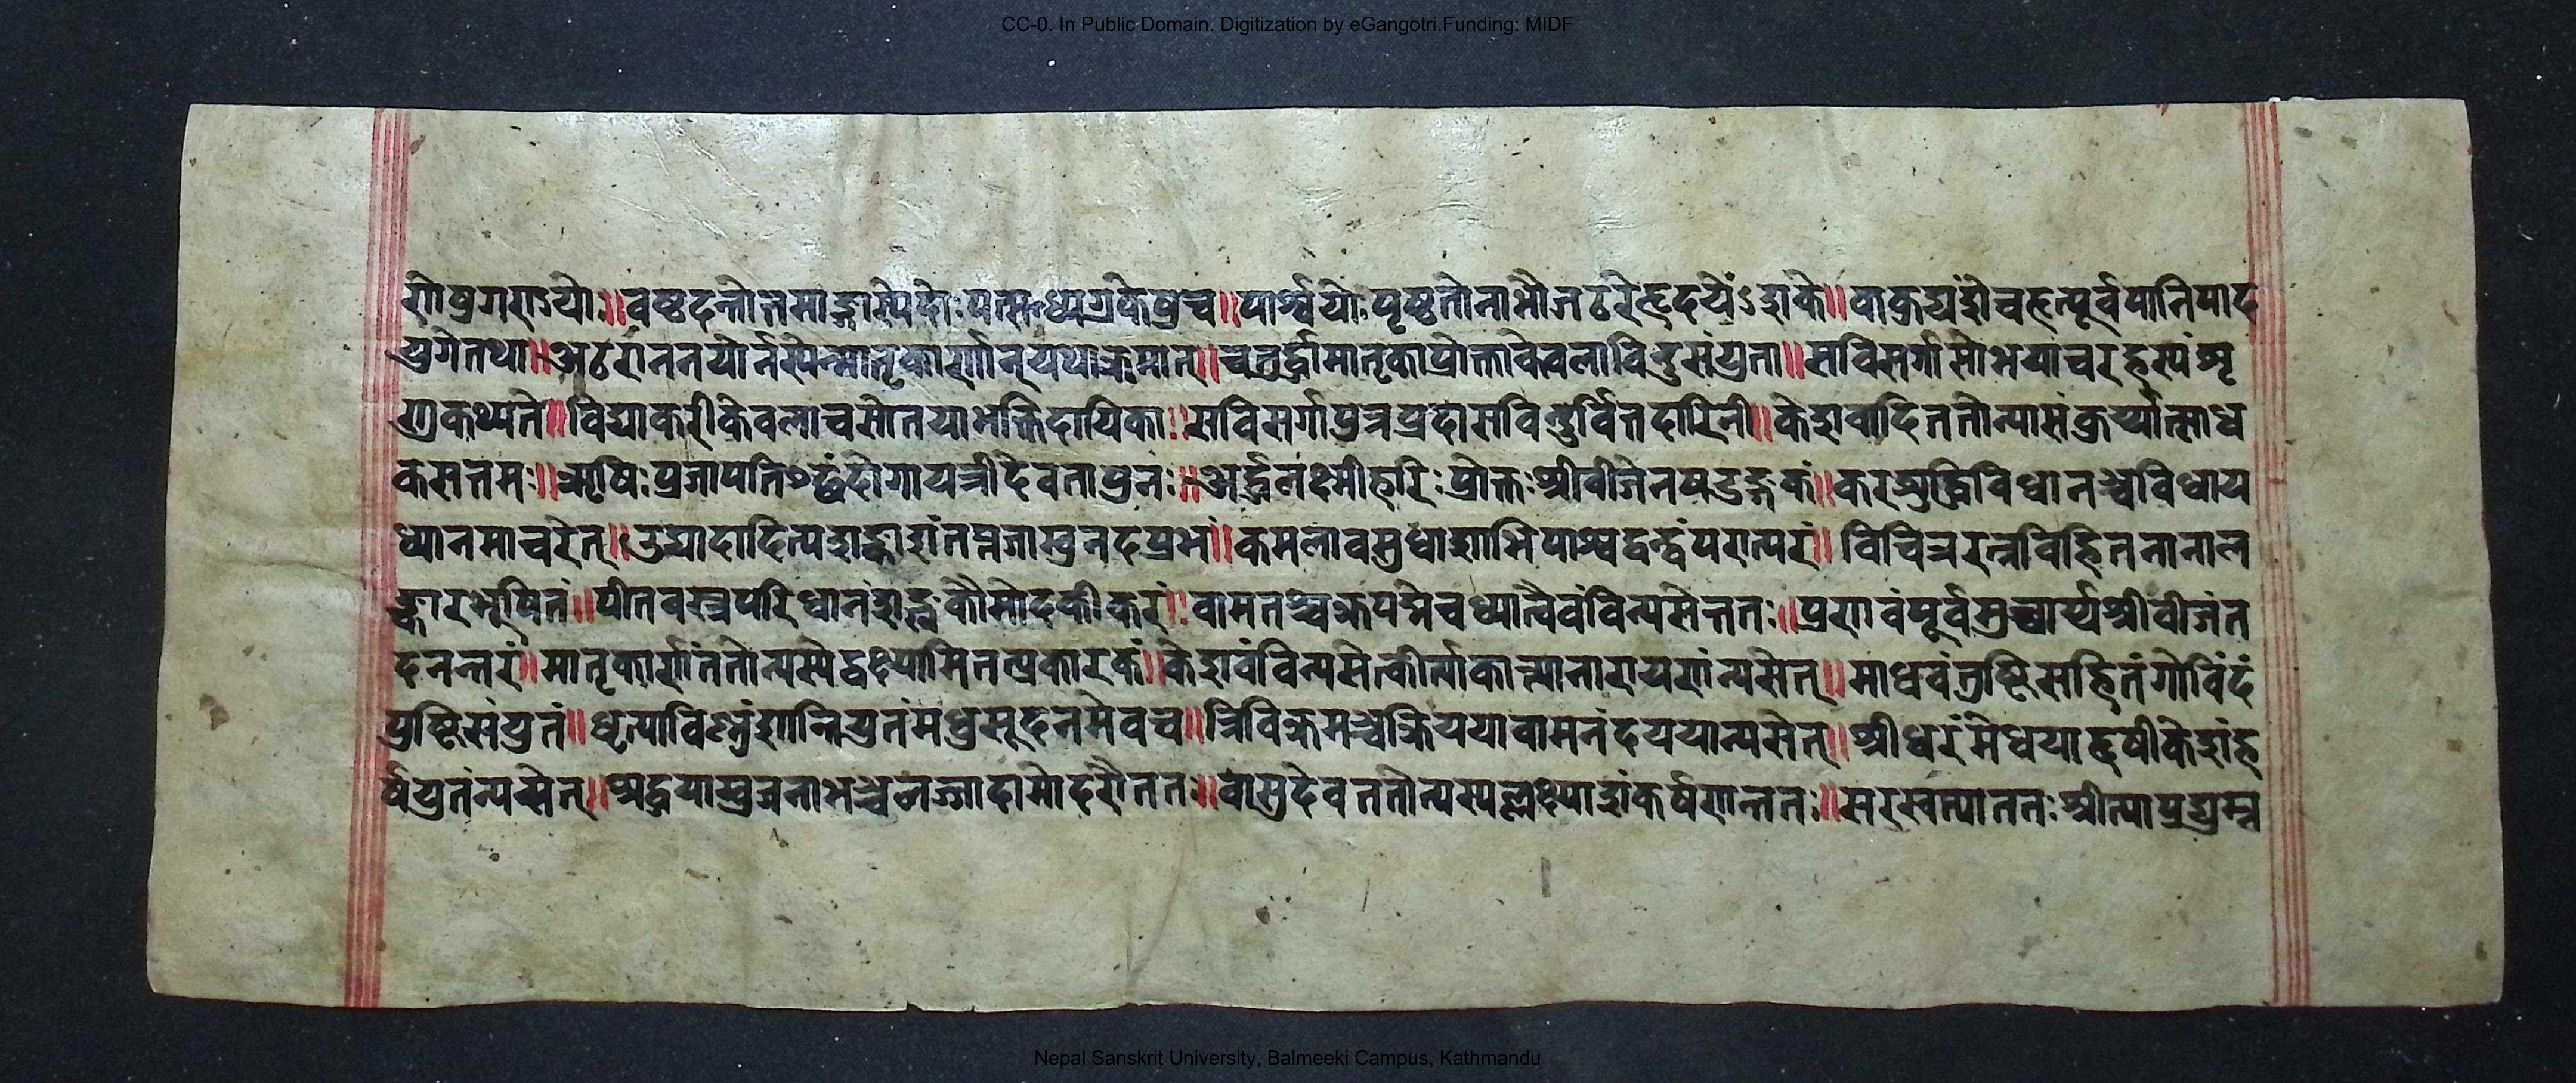 CC-0. In Public Domain. Digitization by eGangotri.Funding: MIDF
पार्श्वयोः पृष्ठतो नाभौ जठरे हृदयेंऽशके॥
युगे तथा॥ जठराननयोर्न्नस्येन्मातृकार्णान् यथाक्रमात्॥ चतुर्द्धा मातृका प्रोक्ता केवला विंदुसंयुता॥ सविसर्गा सोभया च रहस्यं शृ
णु कथ्यते॥ विद्याकरी केवला च सोतया भक्तिदायिका॥ सविसर्गा पुत्रप्रदा सविन्दुर्वित्तदायिनी॥ केशवादि ततो न्यासं कुर्य्यात्साध
कसत्तमः॥ ऋषिः प्रजापतिश्छंदो गायत्री देवता पुनः॥ अर्द्धलक्ष्मीहरिः प्रोक्तः श्रीवीजेन षडङ्गकं॥ करशुद्धिविधानञ्च विधाय
ध्यानमाचरेत्॥ उद्यदादित्यशङ्काशं तप्तजाम्बुनदप्रभं॥ कमलावसुधाशोभिपार्श्वद्वन्द्वं परात्परं॥ विचित्ररत्नविहितनानाल
ङ्कारभूषितं॥ पीतवस्त्रपरिधानं शङ्खकौमोदकीकरं॥ वामतश्चक्रपद्मे च ध्यात्वैवं विन्यसेत्ततः॥ प्रणवं पूर्वमुच्चार्य्य श्रीवीजं त
दनन्तरं॥ मातृकार्णं ततो न्यस्येद्वक्ष्यामि तत्प्रकारकं॥ केशवं विन्यसेत्कीर्त्या कान्त्या नारायणं न्यसेत्॥ माधवं तुष्टिसहितं गोविंदं
पुष्टिसंयुतं॥ धृत्या विश्नुं शान्तियुतं मधुसूदनमेव च॥ त्रिविक्रमञ्च क्रियया वामनं दययान्यसेत्॥ श्रीधरं मेधया हृषीकेशं ह
र्षयुतं न्यसेत्॥ लज्जा दामोदरौ ततः॥ वासुदेव ततो न्यस्य लक्ष्म्या शंकर्षणन्ततः॥ सरस्वत्या ततः प्रीत्या प्रद्युम्न
Nepal Sanskrit University, Balmeeki Campus, Kathmandu